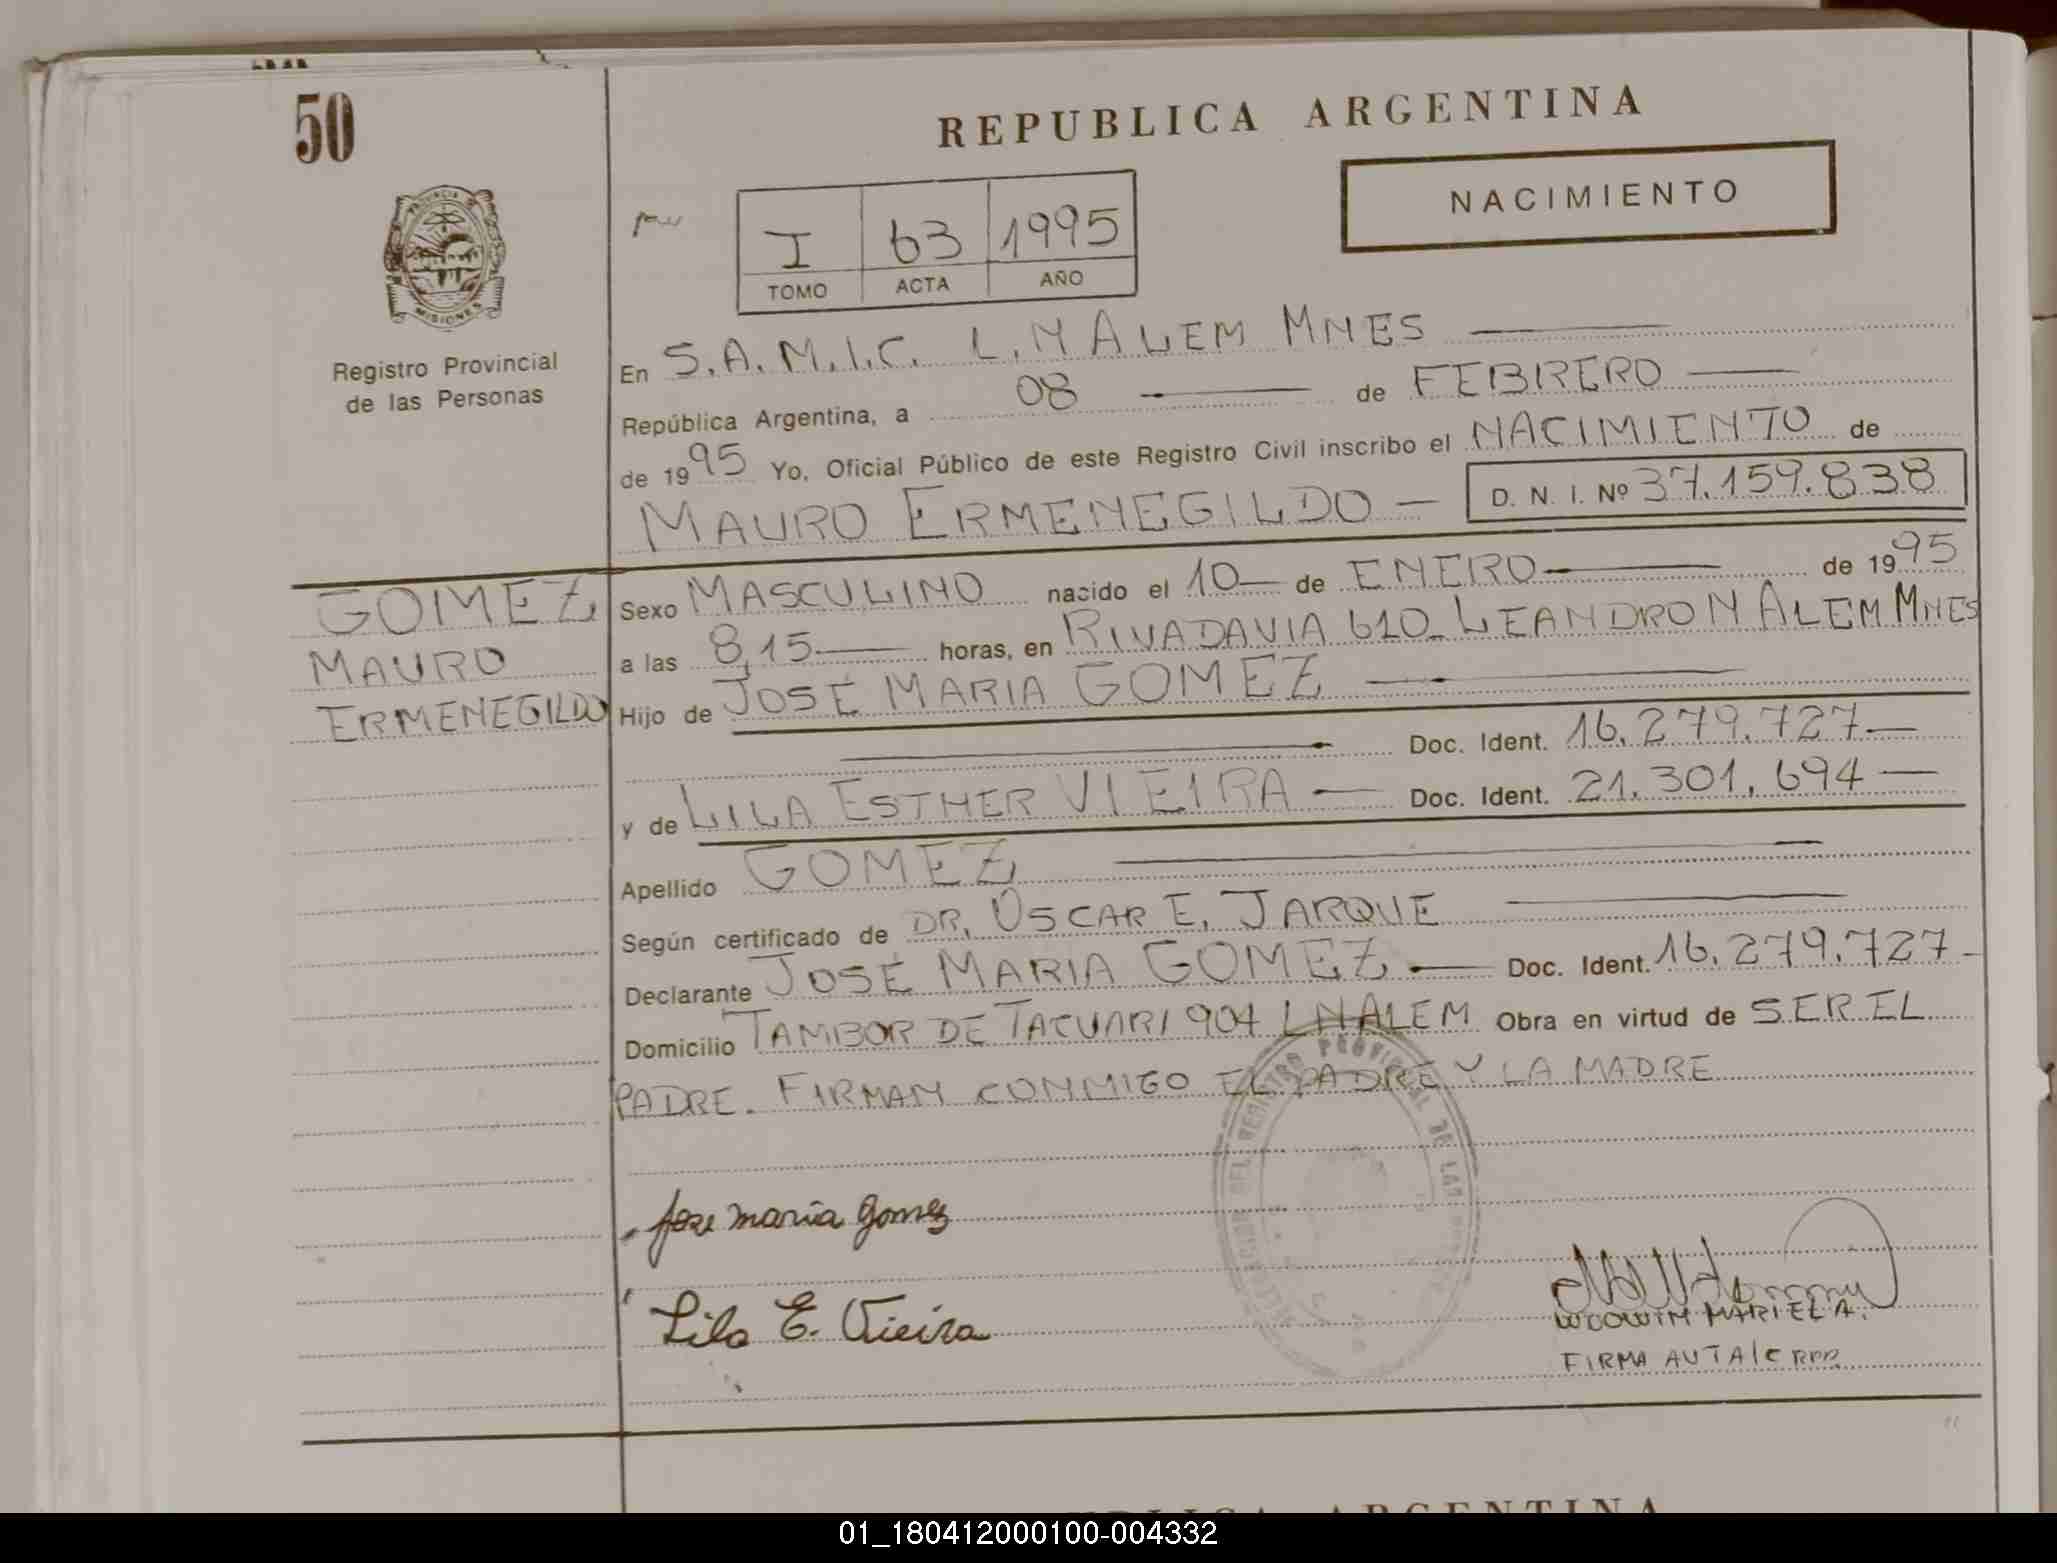 50
REPUBLICA ARGENTINA
NACIMIENTO
PROVINCIA DE
MISIONES
Registro Provincial
de las Personas
I 63 1995
TOMO ACTA AÑO
En S.A.M.I.C. L.N ALEM MNES
República Argentina, a 08 de FEBRERO
de 1995 Yo, Oficial Público de este Registro Civil inscribo el NACIMIENTO de
MAURO ERMENEGILDO — D. N. I. Nº 37.159.838
GOMEZ
MAURO
ERMENEGILDO
Sexo MASCULINO nacido el 10 — de ENERO — de 1995
a las 8,15 — horas, en RIVADAVIA 610 LEANDRO N ALEM MNES
Hijo de JOSÉ MARIA GOMEZ —
Doc. Ident. 16.279.727 —
y de LILA ESTHER VIEIRA — Doc. Ident. 21.301.694 —
Apellido GOMEZ
Según certificado de DR. OSCAR E. JARQUE
Declarante JOSÉ MARIA GOMEZ — Doc. Ident. 16.279.727 -
Domicilio TAMBOR DE TACUARI 904 L N ALEM Obra en virtud de SER EL
PADRE. FIRMAN CONMIGO EL PADRE Y LA MADRE
REGISTRO PROVINCIAL DE LAS
Jose maria gomez
Lila E. Vieira
MARIEL A.
FIRMA AUT A/C RPP
REPUBLICA ARGENTINA
01_180412000100-004332